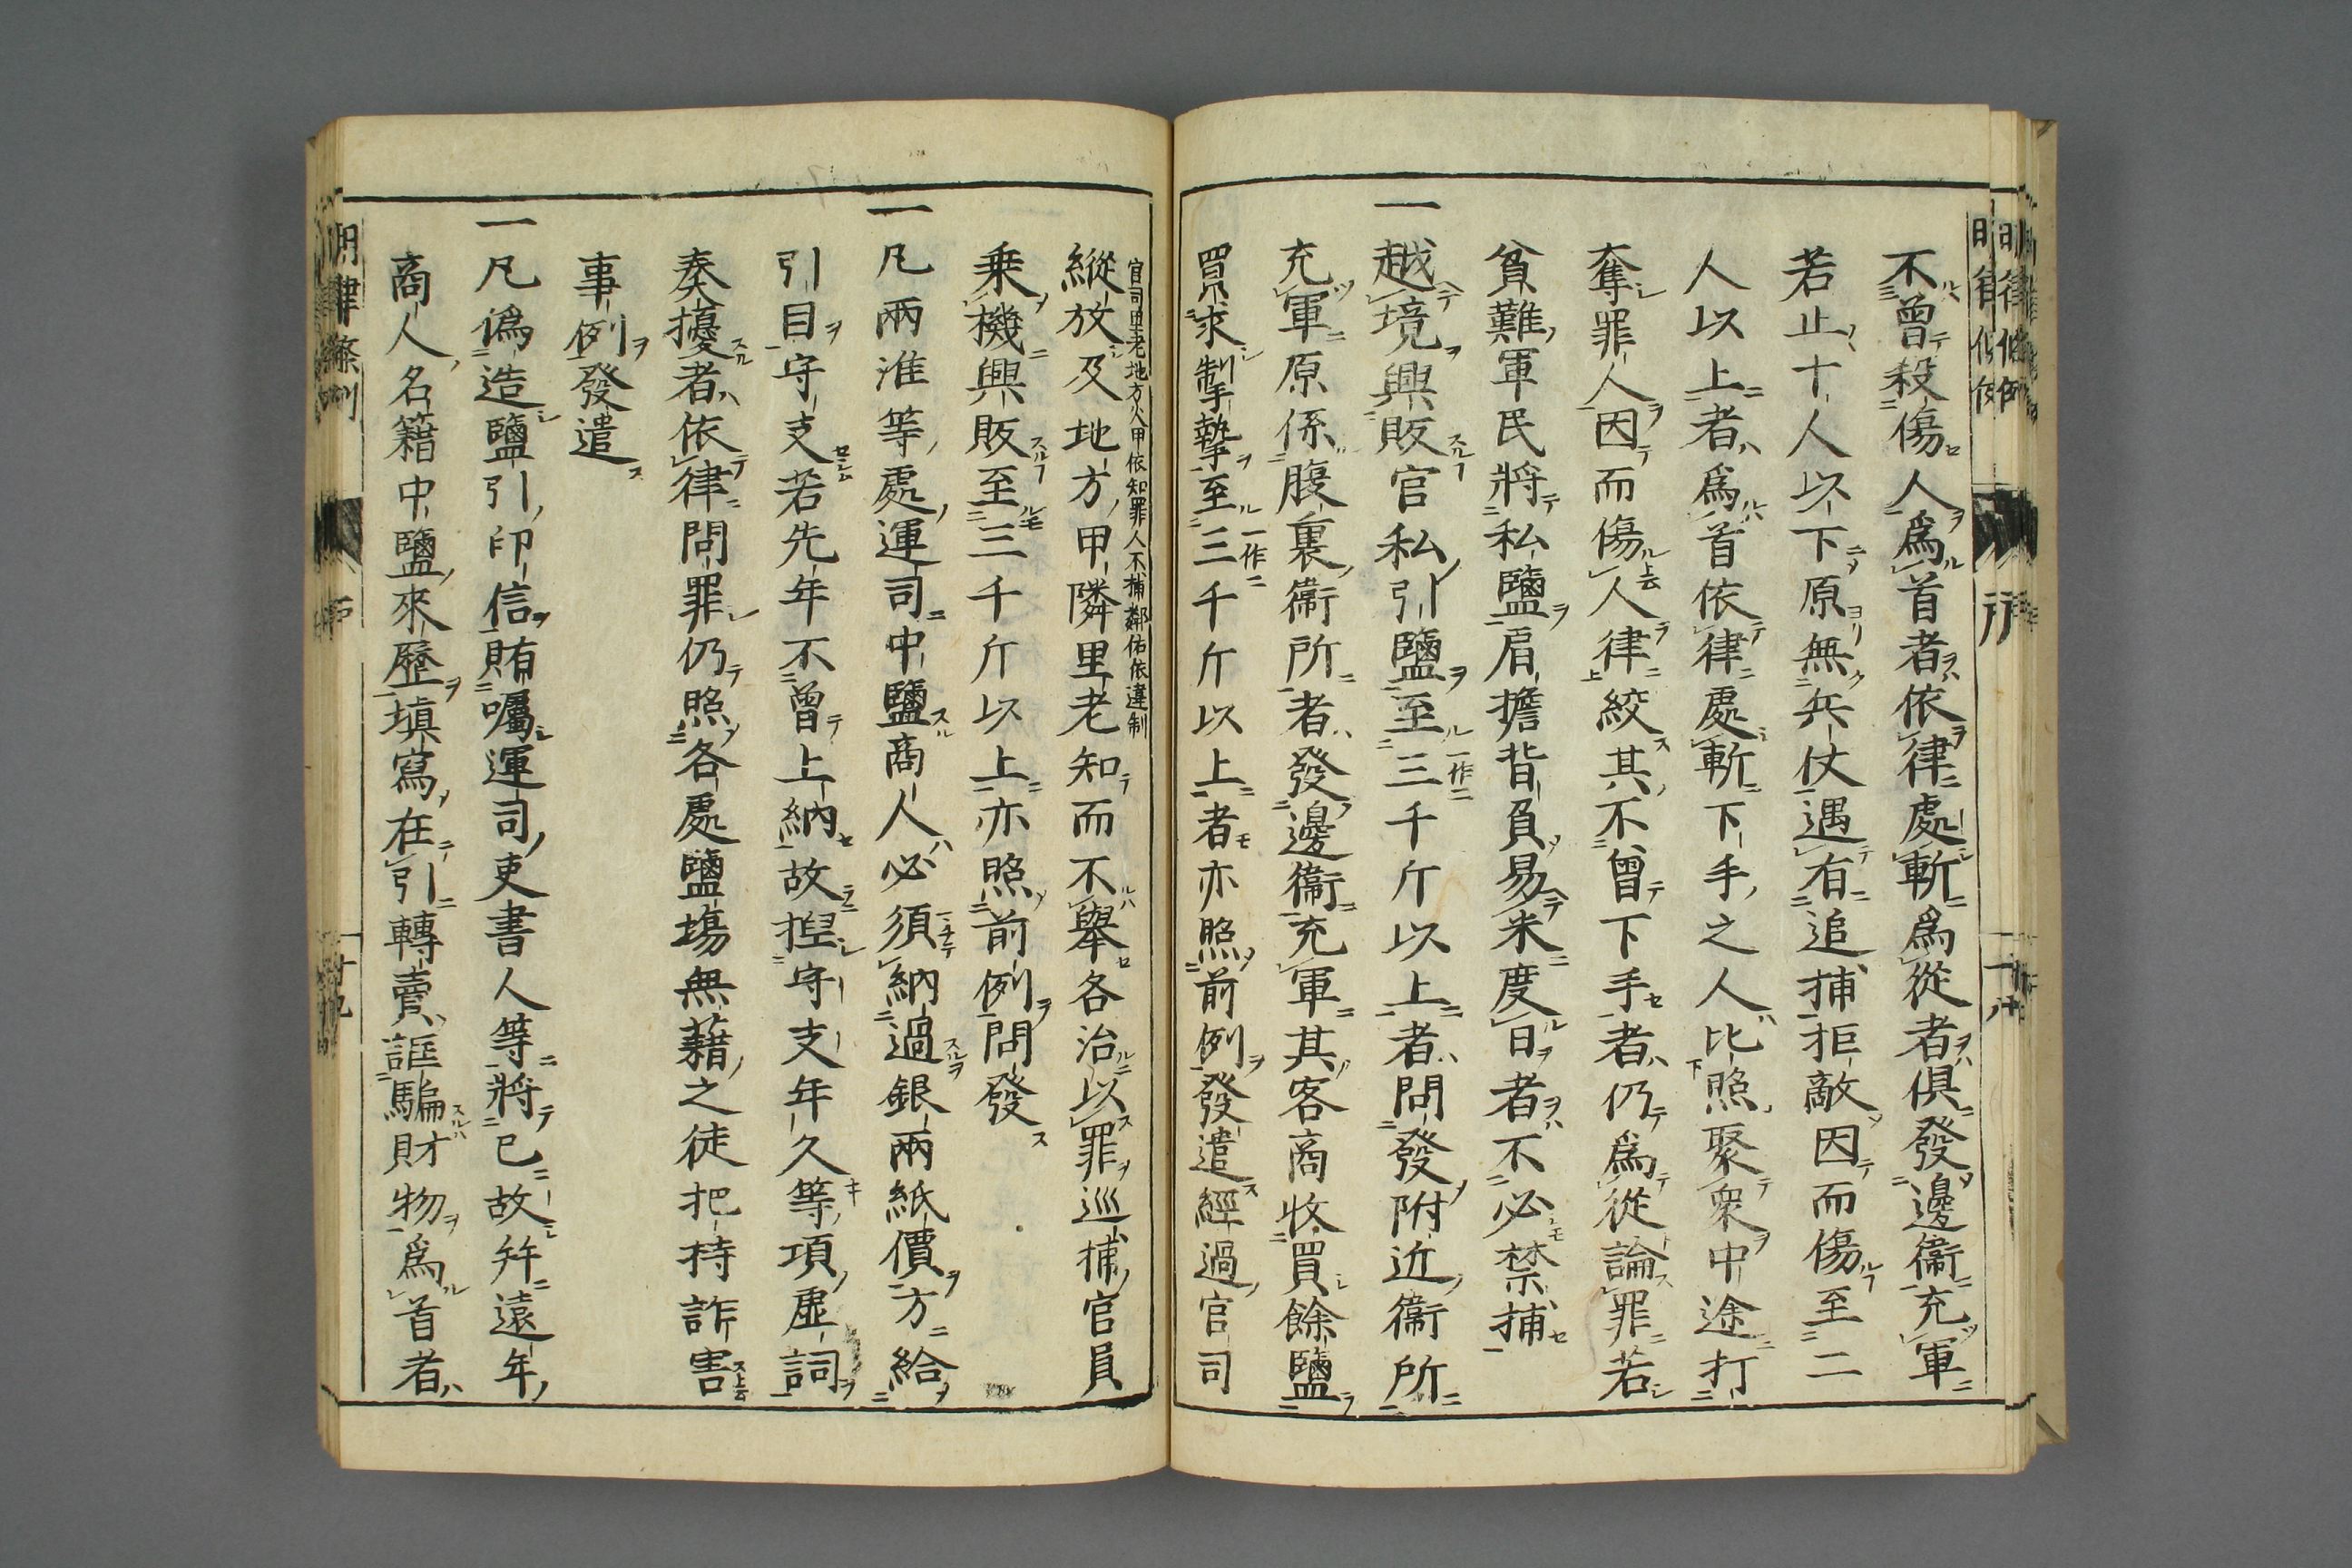 不曾殺傷人爲首者依律處斬爲從者倶發邊衞充軍
若止十人以下原無兵仗遇有追捕拒敵因而傷至二
人以上者爲首依律處斬下手之人比照聚衆中途打
奪罪人因而傷人律絞其不曾下手者仍爲從論罪若
貧難軍民將私鹽肩擔背負易米度日者不必禁捕
一越境興販官私引鹽至三千斤以上者問發附近衞所
一作二
充軍原係腹裏衞所者發邊衞充軍其客商收買餘鹽
買求掣摯至三千斤以上者亦照前例發遣經過官司
一作二
官司里老地方火甲依知罪人不捕鄰佑依違制
縱放及地方甲隣里老知而不舉各治以罪巡捕官員
乗機興販至三千斤以上亦照前例問發
一凡兩淮等處運司中鹽商人必須納過銀兩紙價方給
引目守支若先年不曾上納故捏守支年久等項虛詞
奏擾者依律問罪仍照各處鹽塲無藉之徒把持詐害
事例發遣
一凡僞造鹽引印信賄囑運司吏書人等將已故幷遠年
商人名籍中鹽來歷塡寫在引轉賣誆騙財物爲首者
明律條例
戶
十九